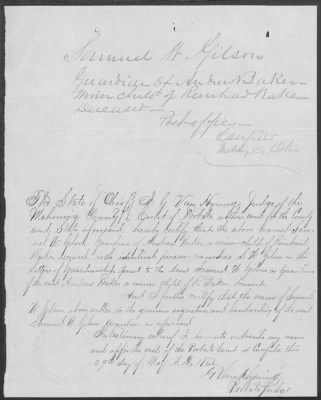 Samuel W. Gilson
Guardian of Andrew Baker
Minor child of Reinhard Baker
Deceased
Post office
Canfield
Mahg Co, Ohio
The State of Ohio } G. Van Hyning Judge of the
Mahoning County } Court of Probate within and for the County
and State aforesaid, hereby certify that the above named Samuel
W. Gilson Guardian of Andrew Baker, a minor child of Reinhard
Baker deceased is the identical person
letter of Guardianship to the said Samuel W. Gilson as Guardian
of the said Andrew Baker a minor child of R. Baker
And I further certify that the name of Samuel
W. Gilson above written is the genuine signature and handwriting of the said
Samuel W. Gilson Guardian as aforesaid
In testimony whereof I hereunto subscribe my name
and affix the seal of the Probate Court at Canfield this
29th day of May A.D.
G Van Hyning
Probate Judge